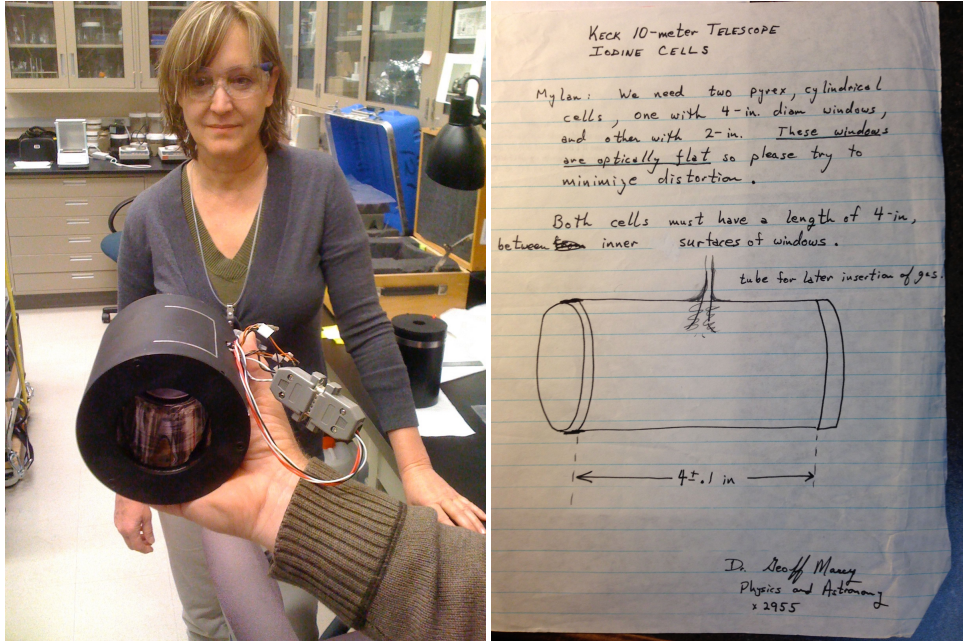 KECK 10-meter TELESCOPE
IODINE CELLS
Mylan: We need two pyrex, cylindrical
cells, one with 4-in. diam windows,
and other with 2-in. These windows
are optically flat so please try to
minimize distortion.
Both cells must have a length of 4-in,
between inner surfaces of windows.
tube for later insertion of gas.
4 ± .1 in
Dr. Geoff Marcy
Physics and Astronomy
x 2955